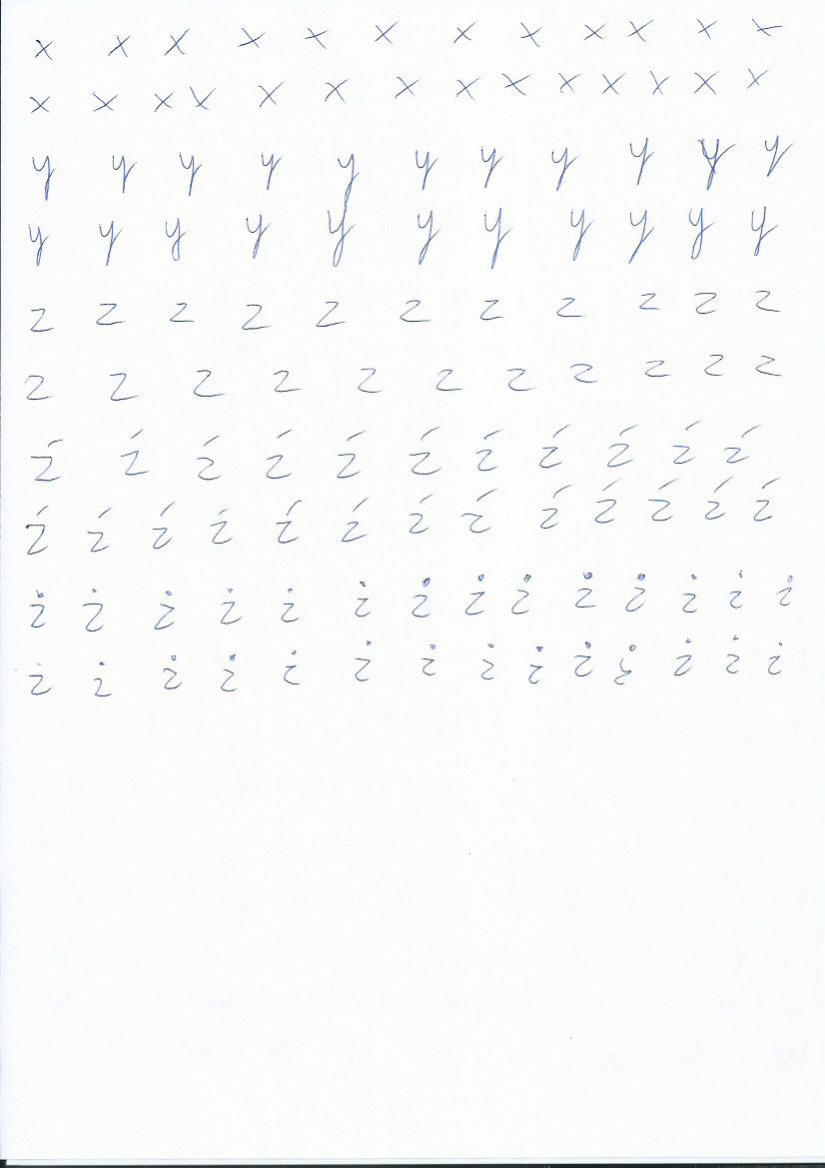 x x x x x x x x x x x x
x x x x x x x x x x x x x x
y y y y y y y y y y y
y y y y y y y y y y y
z z z z z z z z z z z
z z z z z z z z z z z
ź ź ź ź ź ź ź ź ź ź ź
ź ź ź ź ź ź ź ź ź ź ź ź ź
ż ż ż ż ż ż ż ż ż ż ż ż ż ż
ż ż ż ż ż ż ż ż ż ż ż ż ż ż